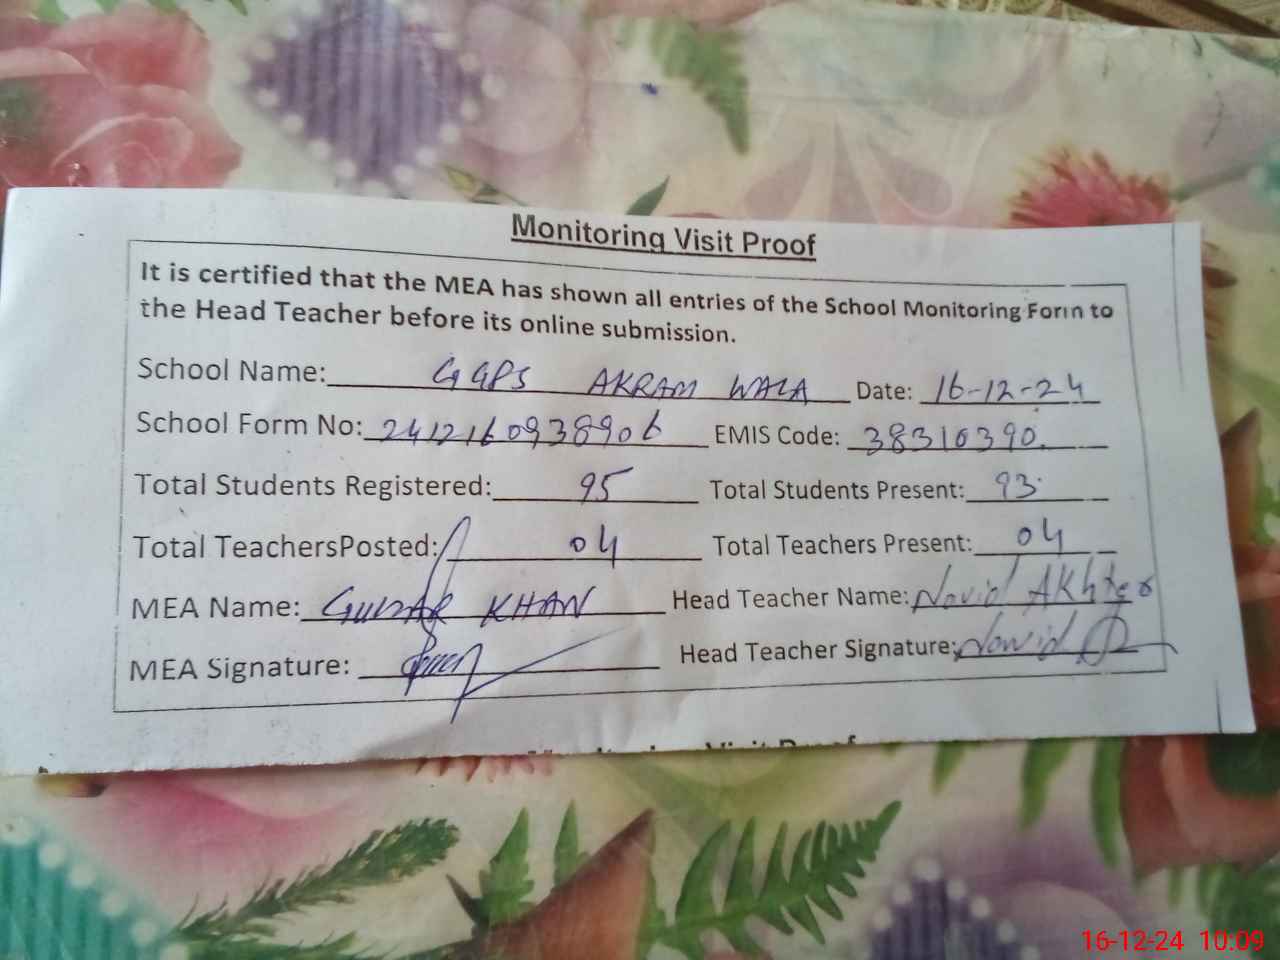 Monitoring Visit Proof
It is certified that the MEA has shown all entries of the School Monitoring Form to
the Head Teacher before its online submission.
School Name: GGPS AKRAM WALA Date: 16-12-24
School Form No: 2412160938906 EMIS Code: 38310390
Total Students Registered: 95 Total Students Present: 93
Total TeachersPosted: 04 Total Teachers Present: 04
MEA Name: KHAN Head Teacher Name: Navid Akhter
MEA Signature: Head Teacher Signature: Nawid
Monitoring Visit Proof
16-12-24 10:09